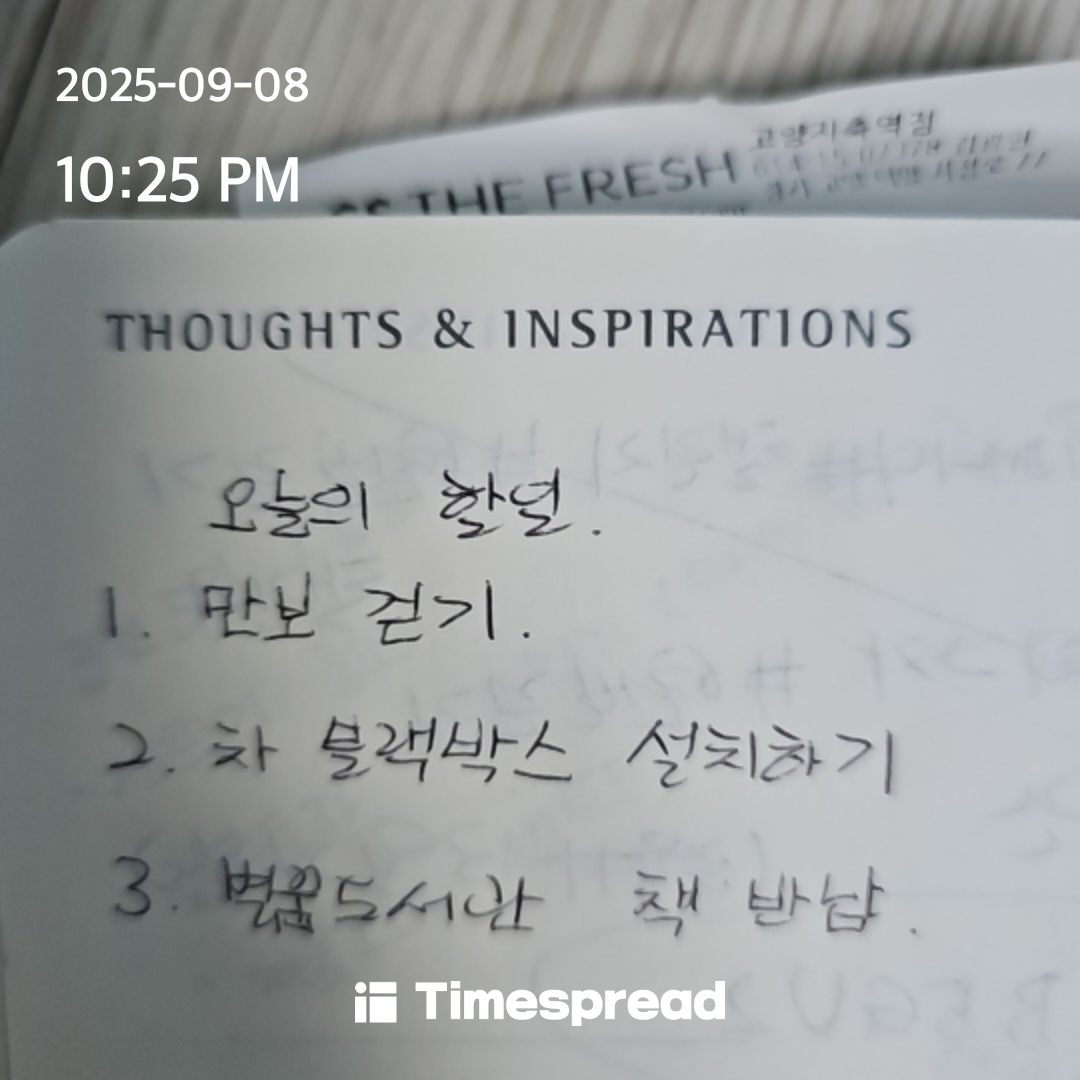 2025-09-08
10:25 PM
THE FRESH
고양지축역점
THOUGHTS & INSPIRATIONS
오늘의 할일.
1. 만보 걷기.
2. 차 블랙박스 설치하기
3. 별꿈도서관 책 반납.
Timespread